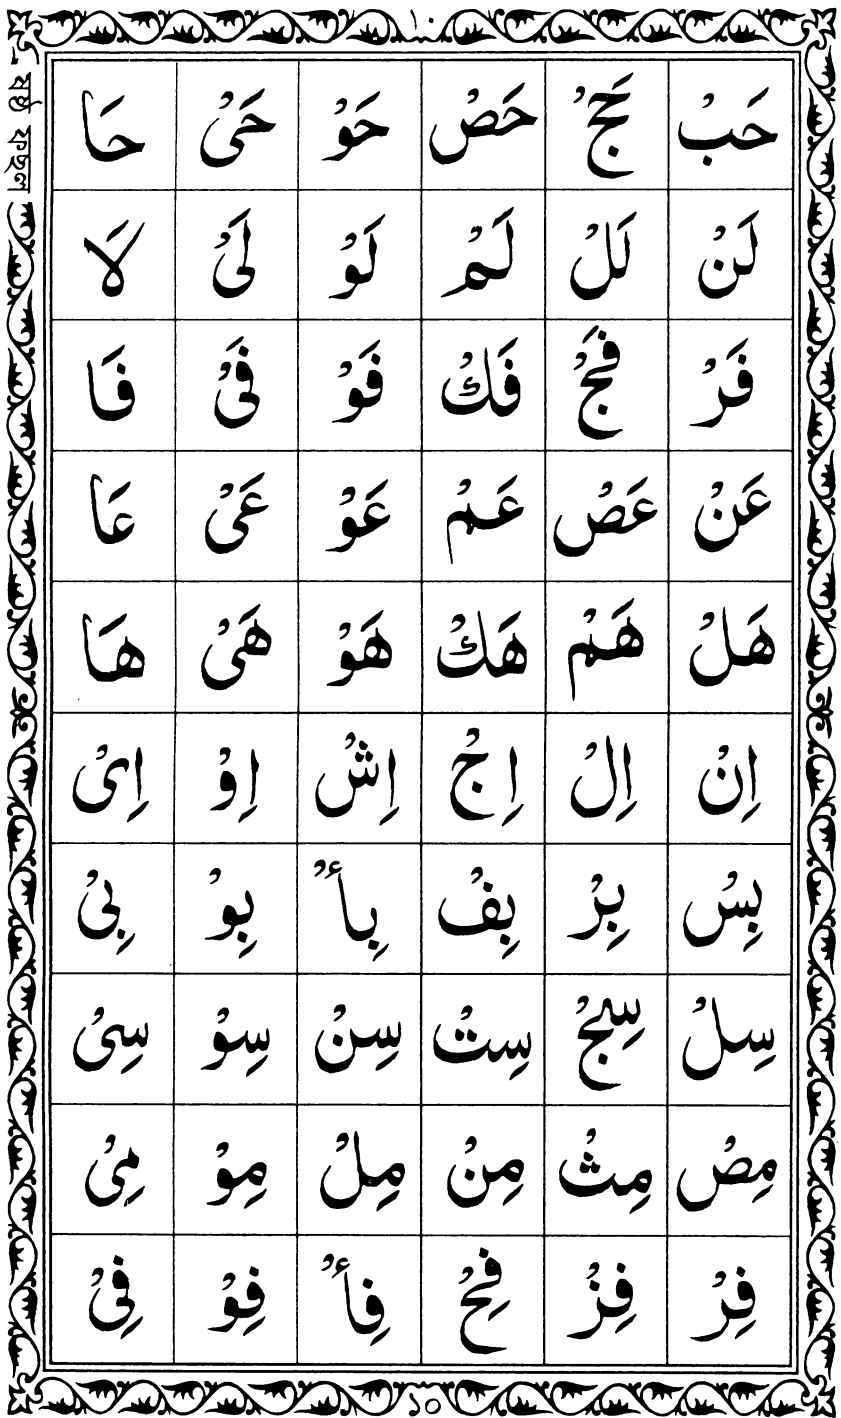 ۱۰
ষষ্ঠ ফছল
حَبْ حَجْ حَصْ حَوْ حَىْ حَا
لَنْ لَلْ لَمْ لَوْ لَىْ لَا
فَرْ فَجْ فَكْ فَوْ فَىْ فَا
عَنْ عَصْ عَمْ عَوْ عَىْ عَا
هَلْ هَمْ هَكْ هَوْ هَىْ هَا
اِنْ اِلْ اِجْ اِشْ اِوْ اِىْ
بِسْ بِرْ بِفْ بِأْ بِوْ بِىْ
سِلْ سِجْ سِتْ سِنْ سِوْ سِىْ
مِصْ مِثْ مِنْ مِلْ مِوْ مِىْ
فِرْ فِزْ فِحْ فِأْ فِوْ فِىْ
১০